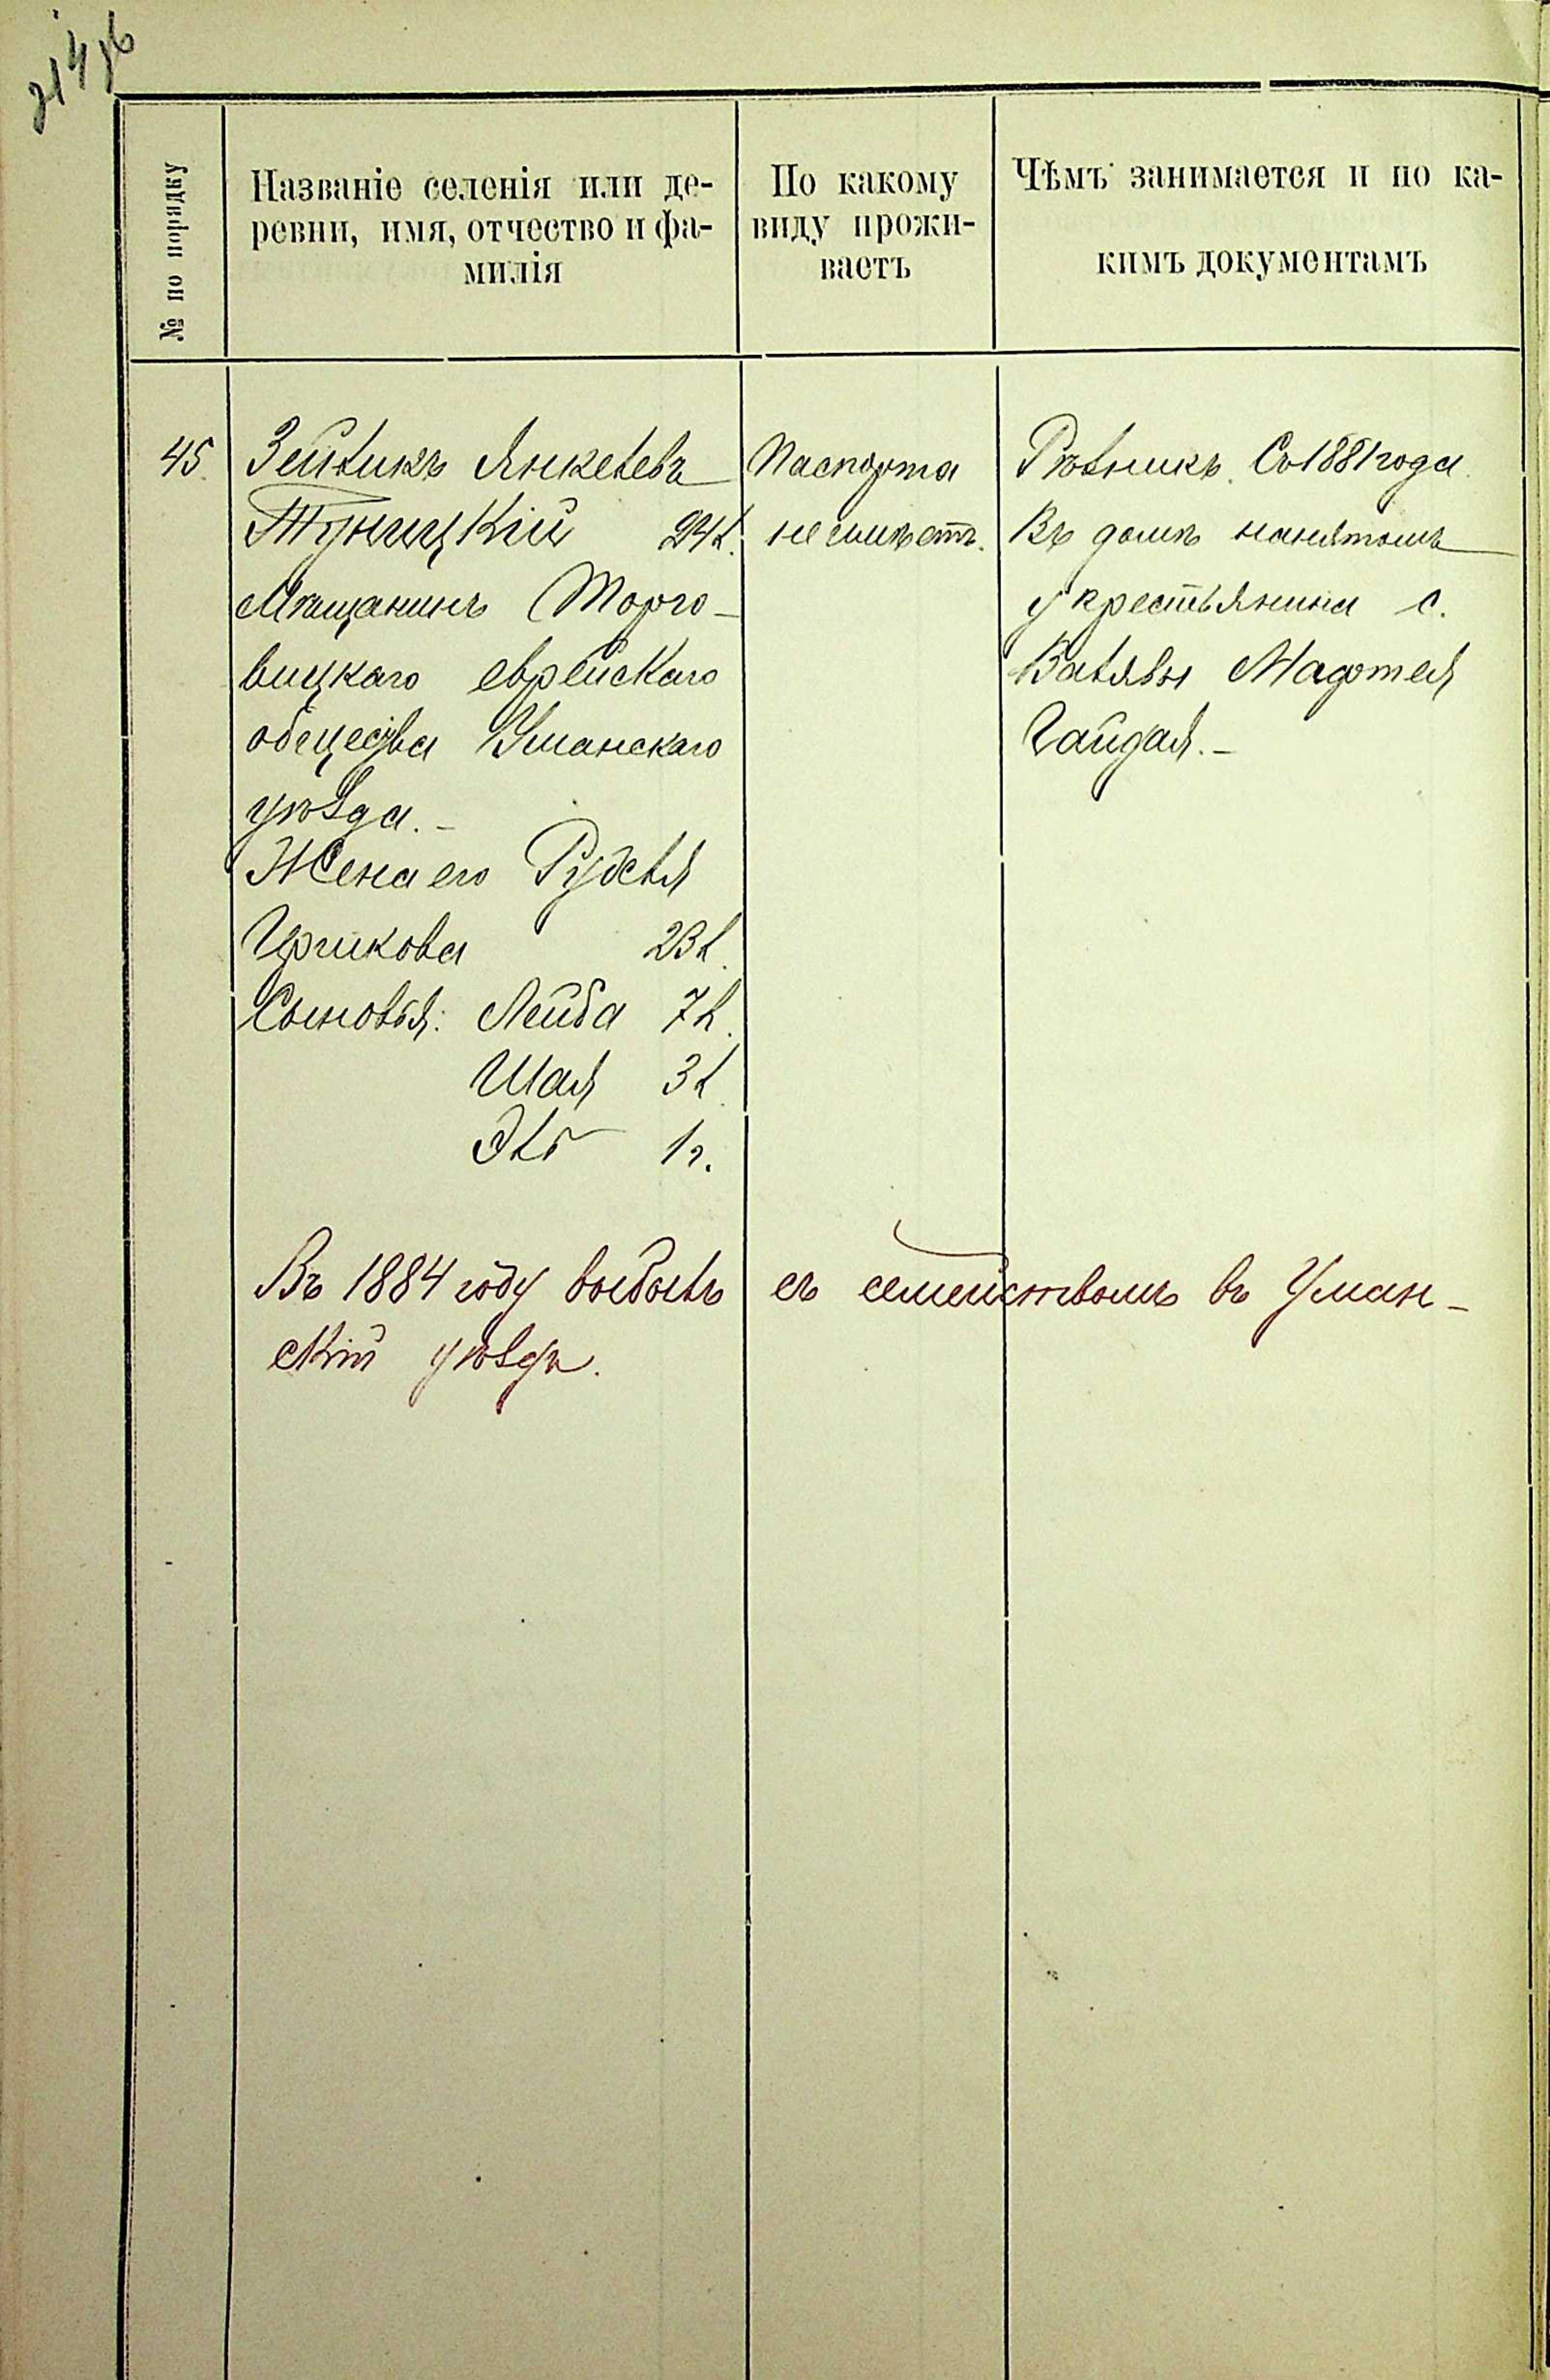 214 об
№ по порядку
Названіе селенія или де-
ревни, имя, отчество и фа-
милія
По какому
виду прожи-
ваетъ
Чѣмъ занимается и по ка-
кимъ документамъ
45.
Зейликъ Янкелевъ
Туницкій 24 л.
Мѣщанинъ Торго-
вицкаго еврейскаго
общества Уманскаго
уѣзда.-
Жена его Рухля
Ицикова 23 л.
Сыновья: Лейба 7 л.
Шая 3 л.
Эль 1 г.
Паспорта
не имѣетъ.
Рѣзникъ. Съ 1881 года
Въ домѣ нанятомъ
у крестьянина с.
Валявы Мафтея
Гайдая.-
Въ 1884 году выбылъ съ семействомъ въ Уман-
скій уѣздъ.